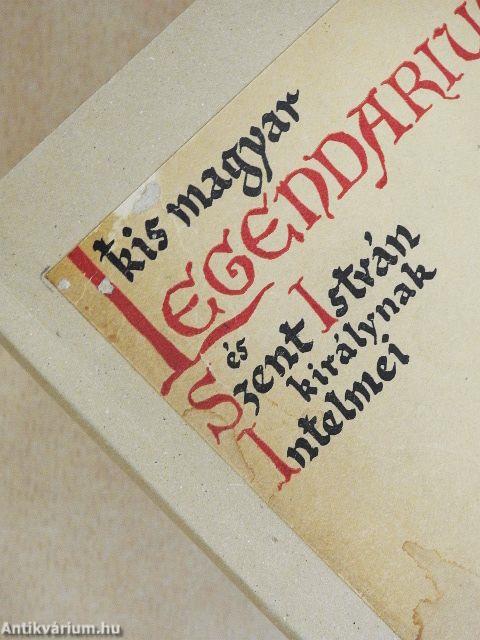 kis magyar
LEGENDARIU
és
Szent István
királynak
Intelmei
Antikvárium.hu